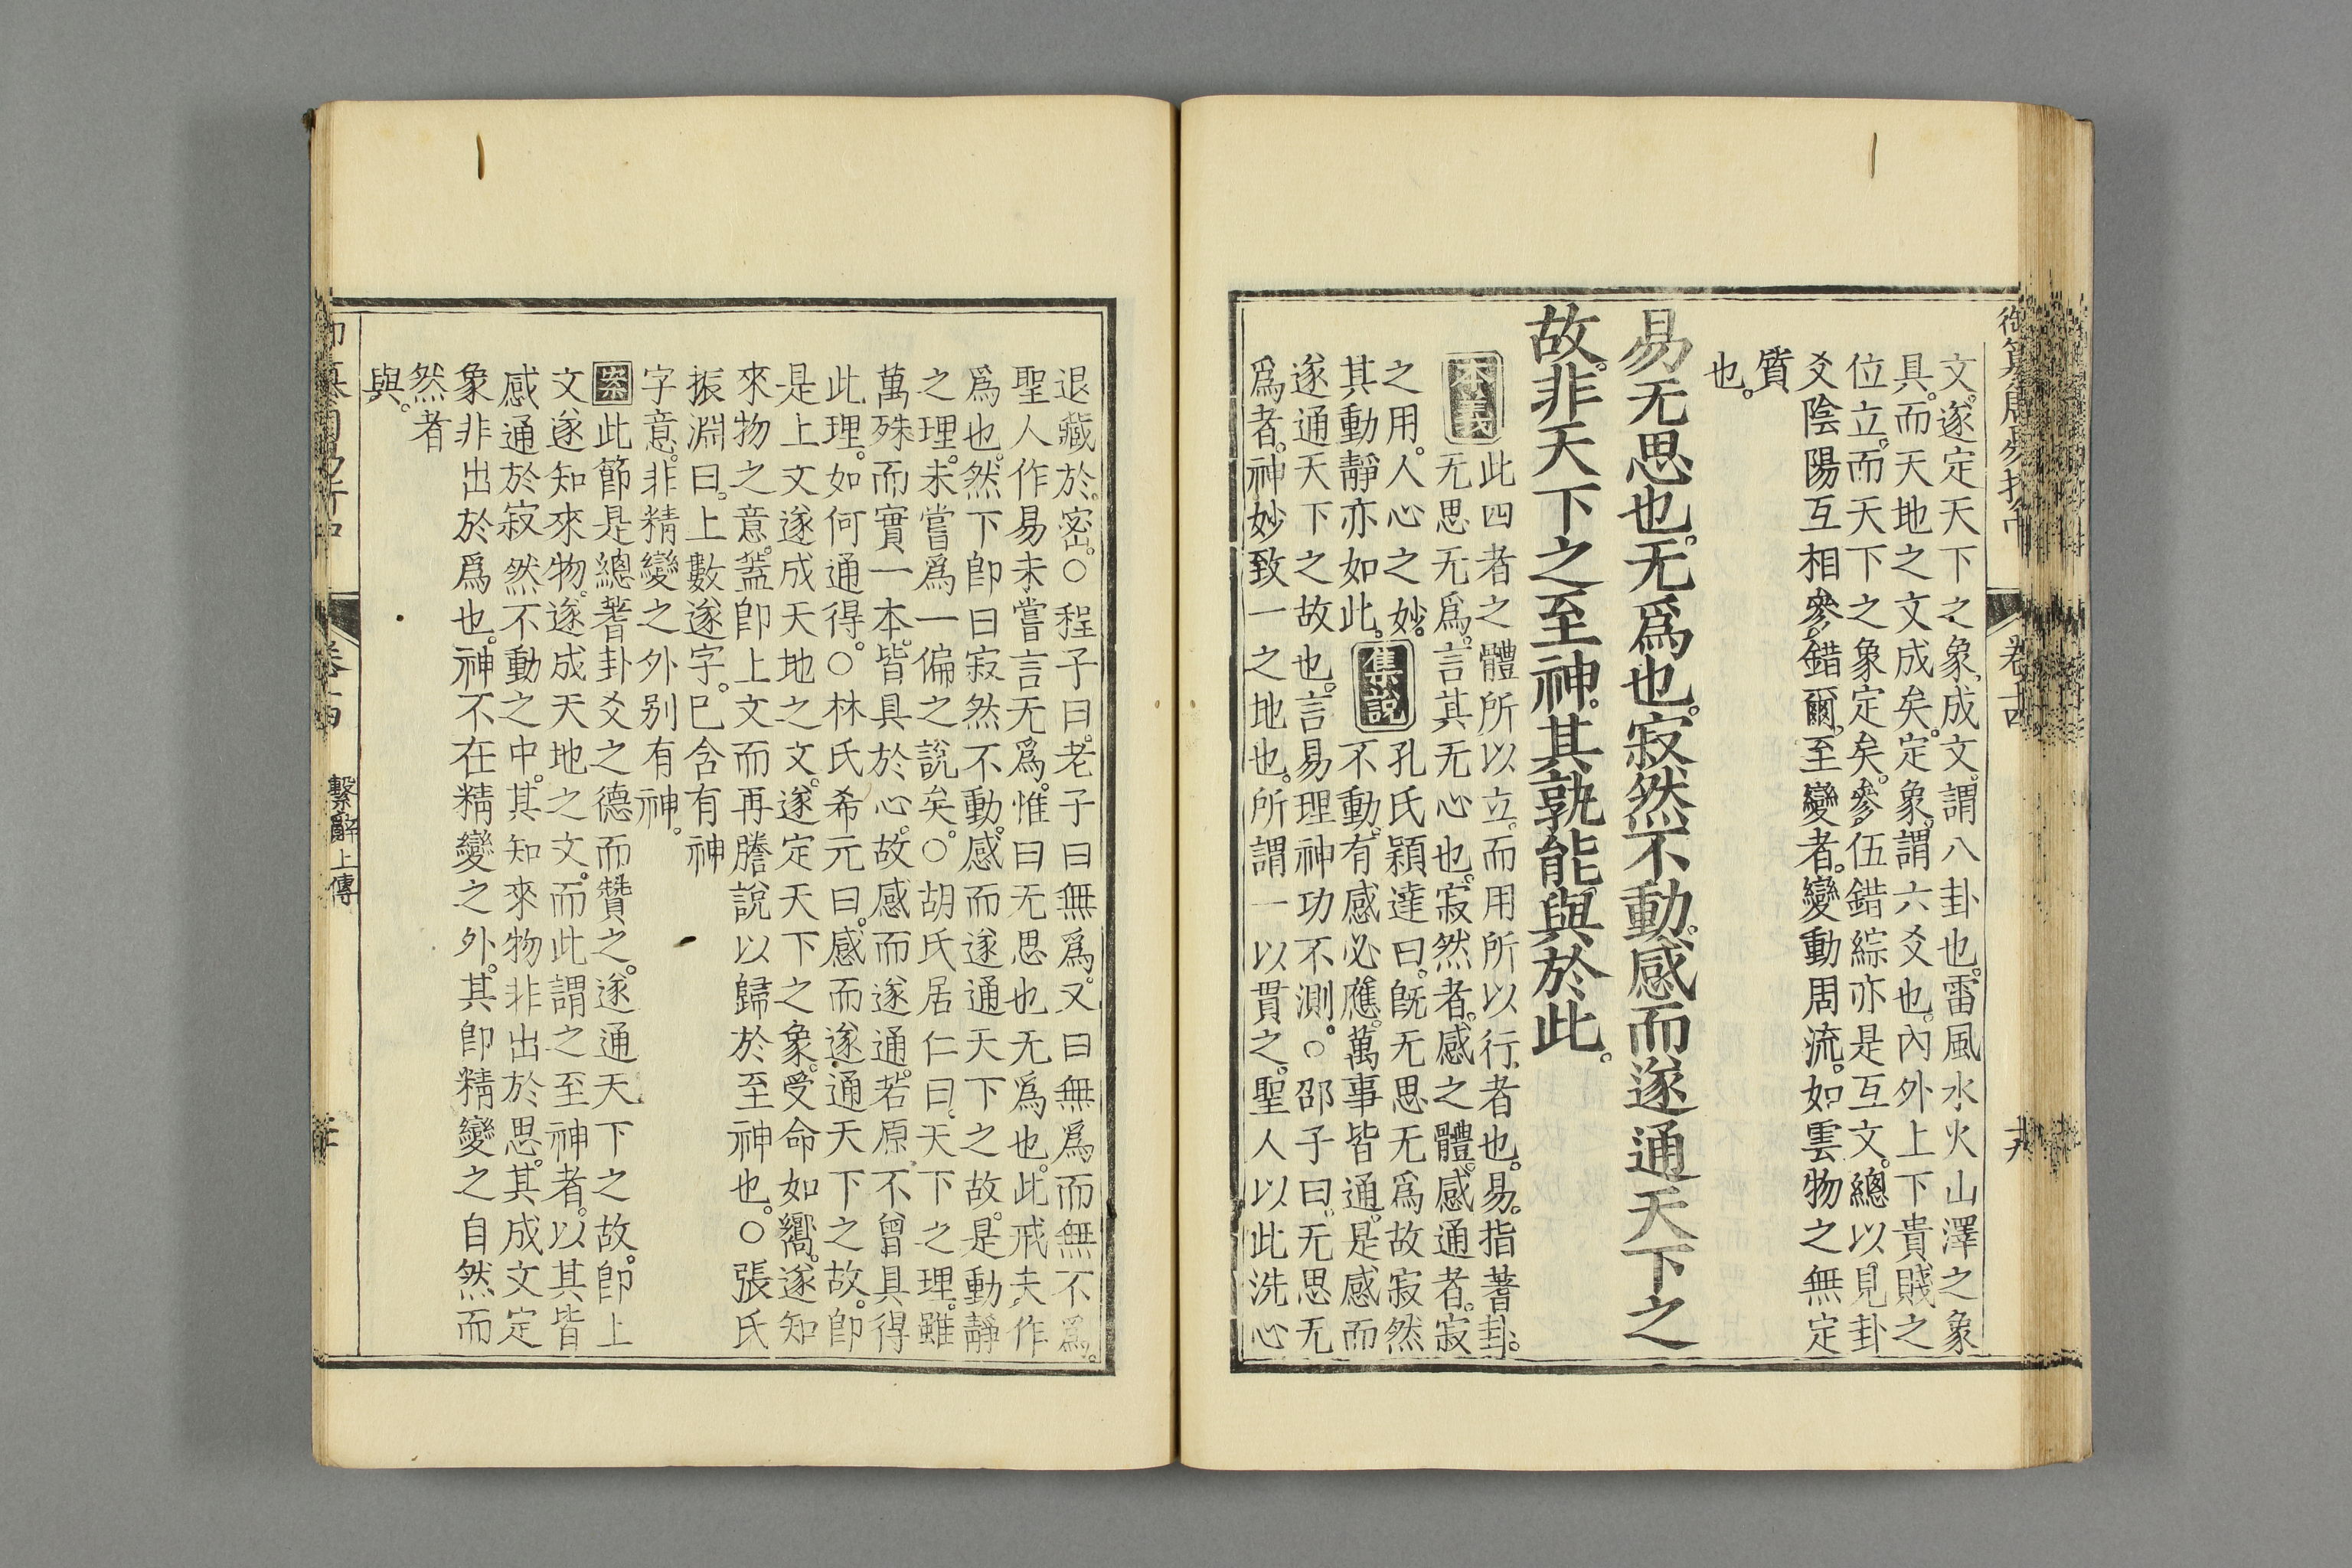 文。遂定天下之象、成文。謂八卦也。雷風水火山澤之象
具。而天地之文成矣。定象。謂六爻也。內外上下貴賤之
位立。而天下之象定矣。參伍錯綜亦是互文。總以見卦
爻陰陽互相參錯爾。至變者。變動周流。如雲物之無定
質
也。
易无思也。无爲也。寂然不動。感而遂通天下之
故。非天下之至神。其孰能與於此。
本義 此四者之體所以立。而用所以行者也。易。指蓍卦。
无思无爲。言其无心也。寂然者。感之體。感通者。寂
之用。人心之妙。其動靜亦如此。
集說 孔氏穎達曰。旣无思无爲故寂然
不動。有感必應。萬事皆通。是感而
遂通天下之故也。言易理神功不測。○邵子曰。无思无
爲者。神妙致一之地也。所謂一以貫之。聖人以此洗心
退藏於密。○程子曰。老子曰無爲。又曰無爲而無不爲。
聖人作易未嘗言无爲。惟曰无思也无爲也。此戒夫作
爲也。然下卽曰寂然不動。感而遂通天下之故。是動靜
之理。未嘗爲一偏之說矣。○胡氏居仁曰。天下之理。雖
萬殊而實一本。皆具於心。故感而遂通。若原不曾具得
此理。如何通得。○林氏希元曰。感而遂通天下之故。卽
是上文遂成天地之文。遂定天下之象。受命如嚮。遂知
來物之意。葢卽上文而再謄說以歸於至神也。○張氏
振淵曰。上數遂字。已含有神
字意。非精變之外别有神。
案 此節是總蓍卦爻之德而贊之。遂通天下之故。卽上
文遂知來物。遂成天地之文。而此謂之至神者。以其皆
感通於寂然不動之中。其知來物非出於思。其成文定
象非出於爲也。神不在精變之外。其卽精變之自然而
然者
與。
繫辭上傳